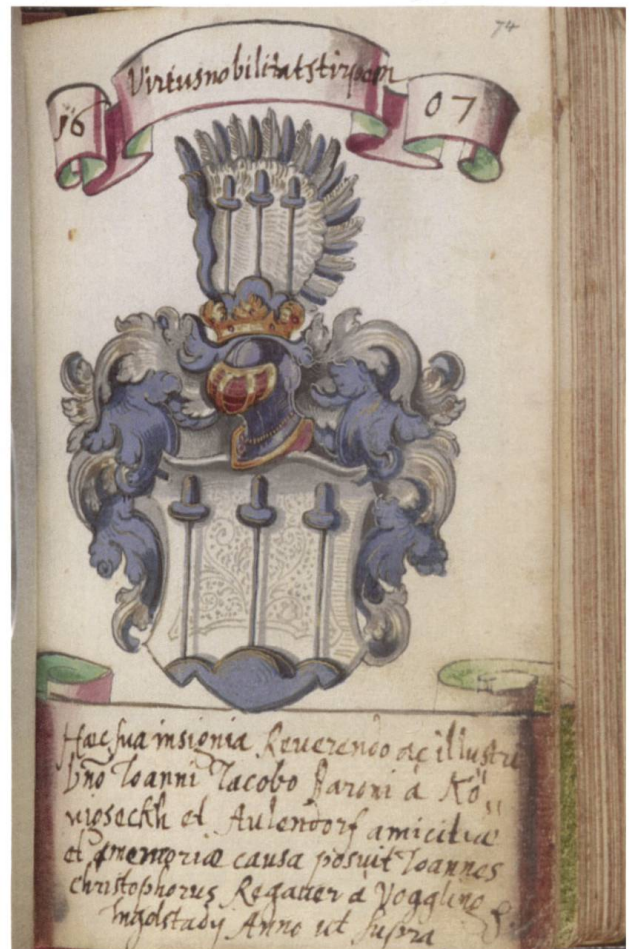 74
Virtus nobilitat stirpem
16 07
Hæc sua insignia Reuerendo ac illustri
Dño Ioanni Iacobo Baroni à Kö,,
nigseckh et Aulendorf amicitiæ
et memoriæ causa posuit Ioannes
Christophorus Regauer à Poggling
Ingolstadij Anno ut supra